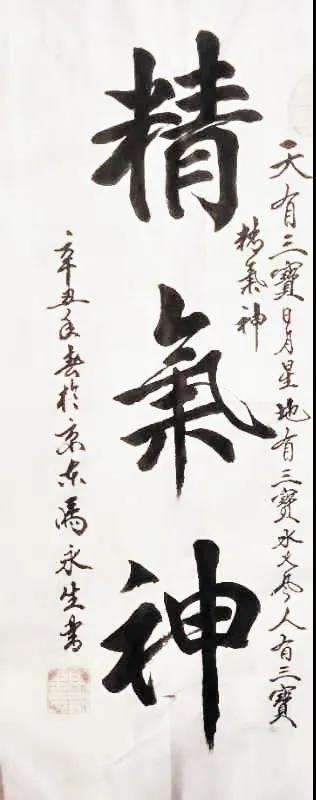 天有三寶日月星地有三寶水火風人有三寶
精氣神
精氣神
辛丑年春於京东馮永生書